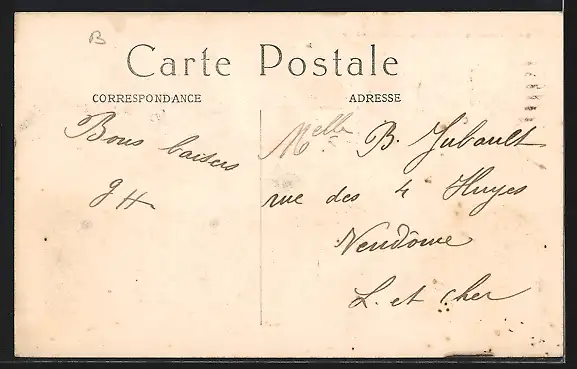 B
Carte Postale
CORRESPONDANCE
ADRESSE
Bons baisers
g H
Melle B. Jubault
rue des 4 Huyes
Vendôme
L. et Cher